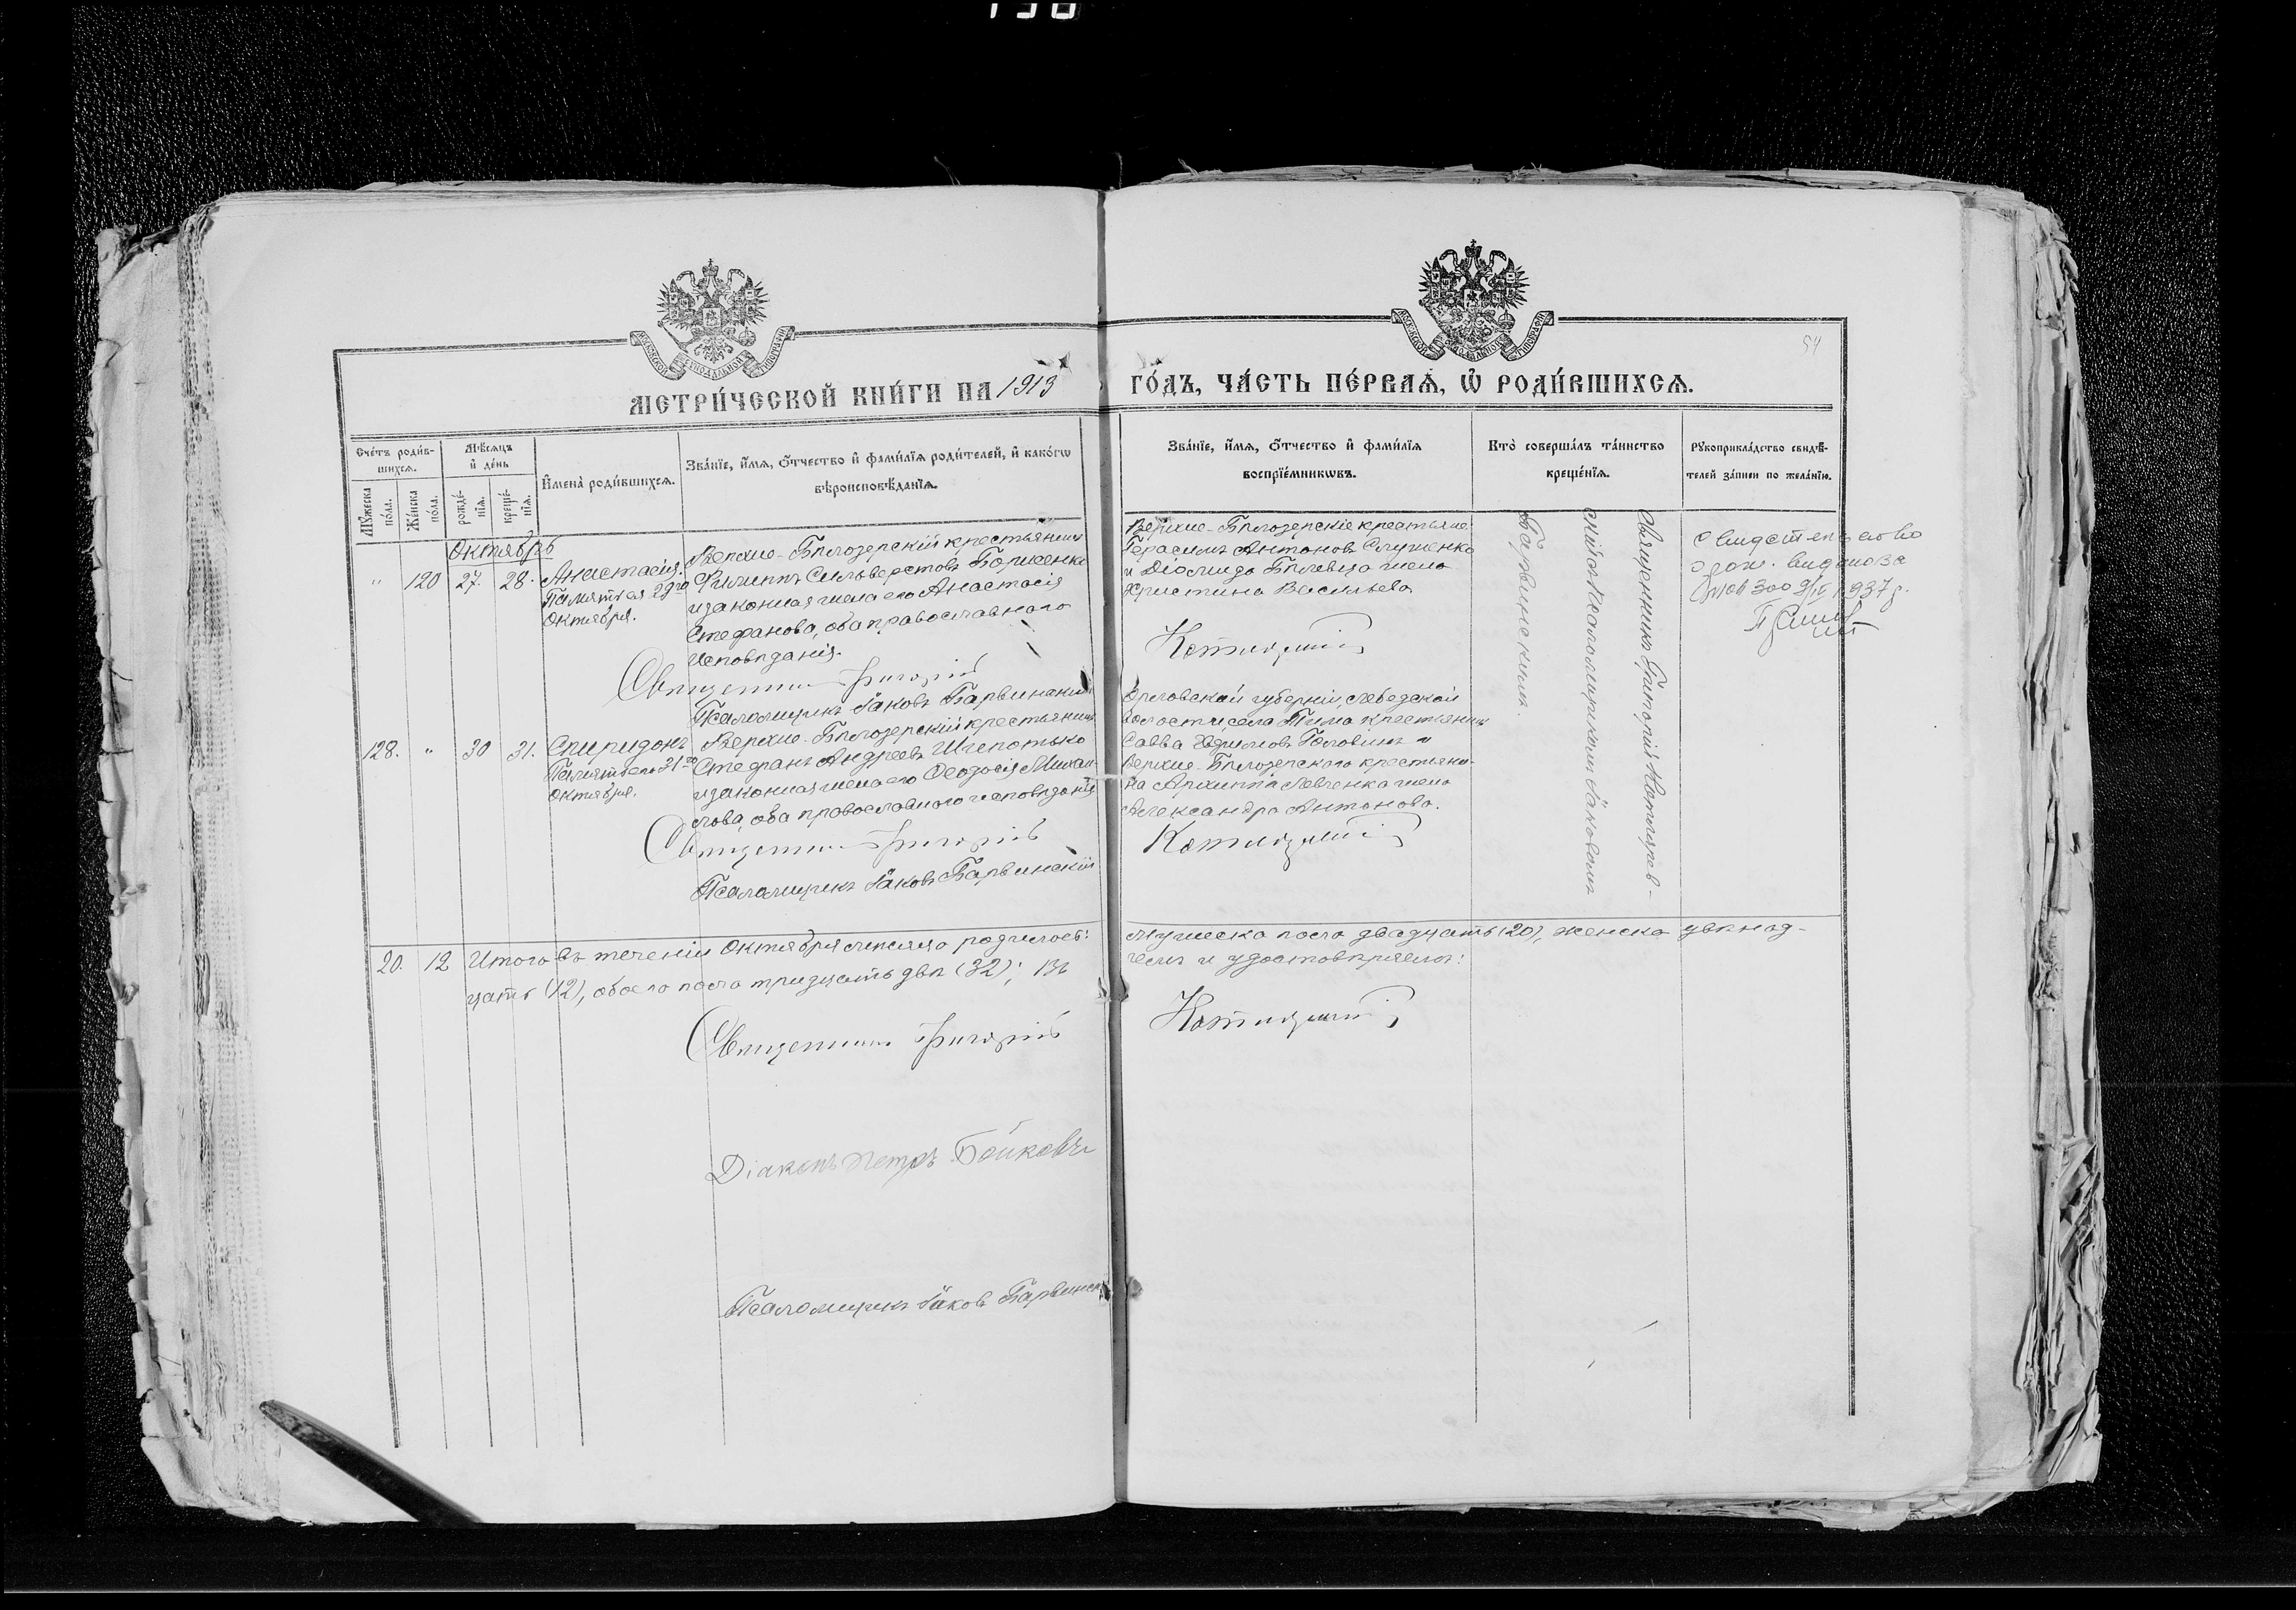 МЕТРИ́ЧЕСКОЙ КНИ́ГИ НА 1913 ГО́ДЪ, ЧА́СТЬ ПЕ́РВАѦ, Ѡ҆ РОДИ́ВШИХСѦ.
54
Сче́тъ роди́в-
шихсѧ.
Мѣ́сяцъ
и҆ де́нь
Мꙋ́жеска
по́ла.
Же́нска
по́ла.
рожде́-
нїѧ.
креще́-
нїѧ.
И҆мена̀ роди́вшихсѧ.
Зва́нїе, и҆́мѧ, ѻ҆́тчество и҆ фами́лїѧ роди́телей, и҆ како́гѡ
вѣроисповѣ́данїѧ.
Зва́нїе, и҆́мѧ, ѻ҆́тчество и҆ фами́лїѧ
воспрїе́мникѡвъ.
Кто̀ соверша́лъ та́инство
креще́нїѧ.
Рꙋкоприкла́дство свидѣ́-
телей за́писи по жела́нїю.
Октябрь
" 120 27. 28.
Анастасія.
Память ея 29го
Октября.
Верхне-Бѣлозерскій крестьянинъ
Филиппъ Сильверстовъ Борисенко
и законная жена его Анастасія
Стефанова, оба православнаго
исповѣданія.
Священникъ Григорій Котляревскій
Псаломщикъ Іаковъ Барвинскій
Верхне-Бѣлозерскіе крестьяне:
Герасимъ Антоновъ Слушенко
и Діомида Бѣлевца жена
Христина Васильева
Священникъ Григорій Котлярев-
скій съ псаломщикомъ Іаковомъ
Барвинскимъ.
Свидетельство
о рож. выдано за
1937 г.
128. " 30 31.
Спиридонъ
Память его 31го
Октября.
Верхне-Бѣлозерскій крестьянинъ
Стефанъ Андреевъ Щепотько
и законная жена его Ѳеодосія Михаи-
лова, оба православнаго исповѣданія
Священникъ Григорій Котляревскій
Псаломщикъ Іаковъ Барвинскій
Орловской губерніи, Лебедской
волости села Тима крестьянинъ
Савва Евфимовъ Головинъ и
Верхне-Бѣлозерскаго крестьяни-
на Архиппа Левченка жена
Александра Антонова.
20. 12 Итого въ теченіи Октября мѣсяца родилось: мужеска пола двадцать (20), женска двѣнад-
цать (12), обоего пола тридцать два (32); въ чемъ и удостовѣряемъ:
Священникъ Григорій Котляревскій
Діаконъ Петръ Бойковъ
Псаломщикъ Іаковъ Барвинскій